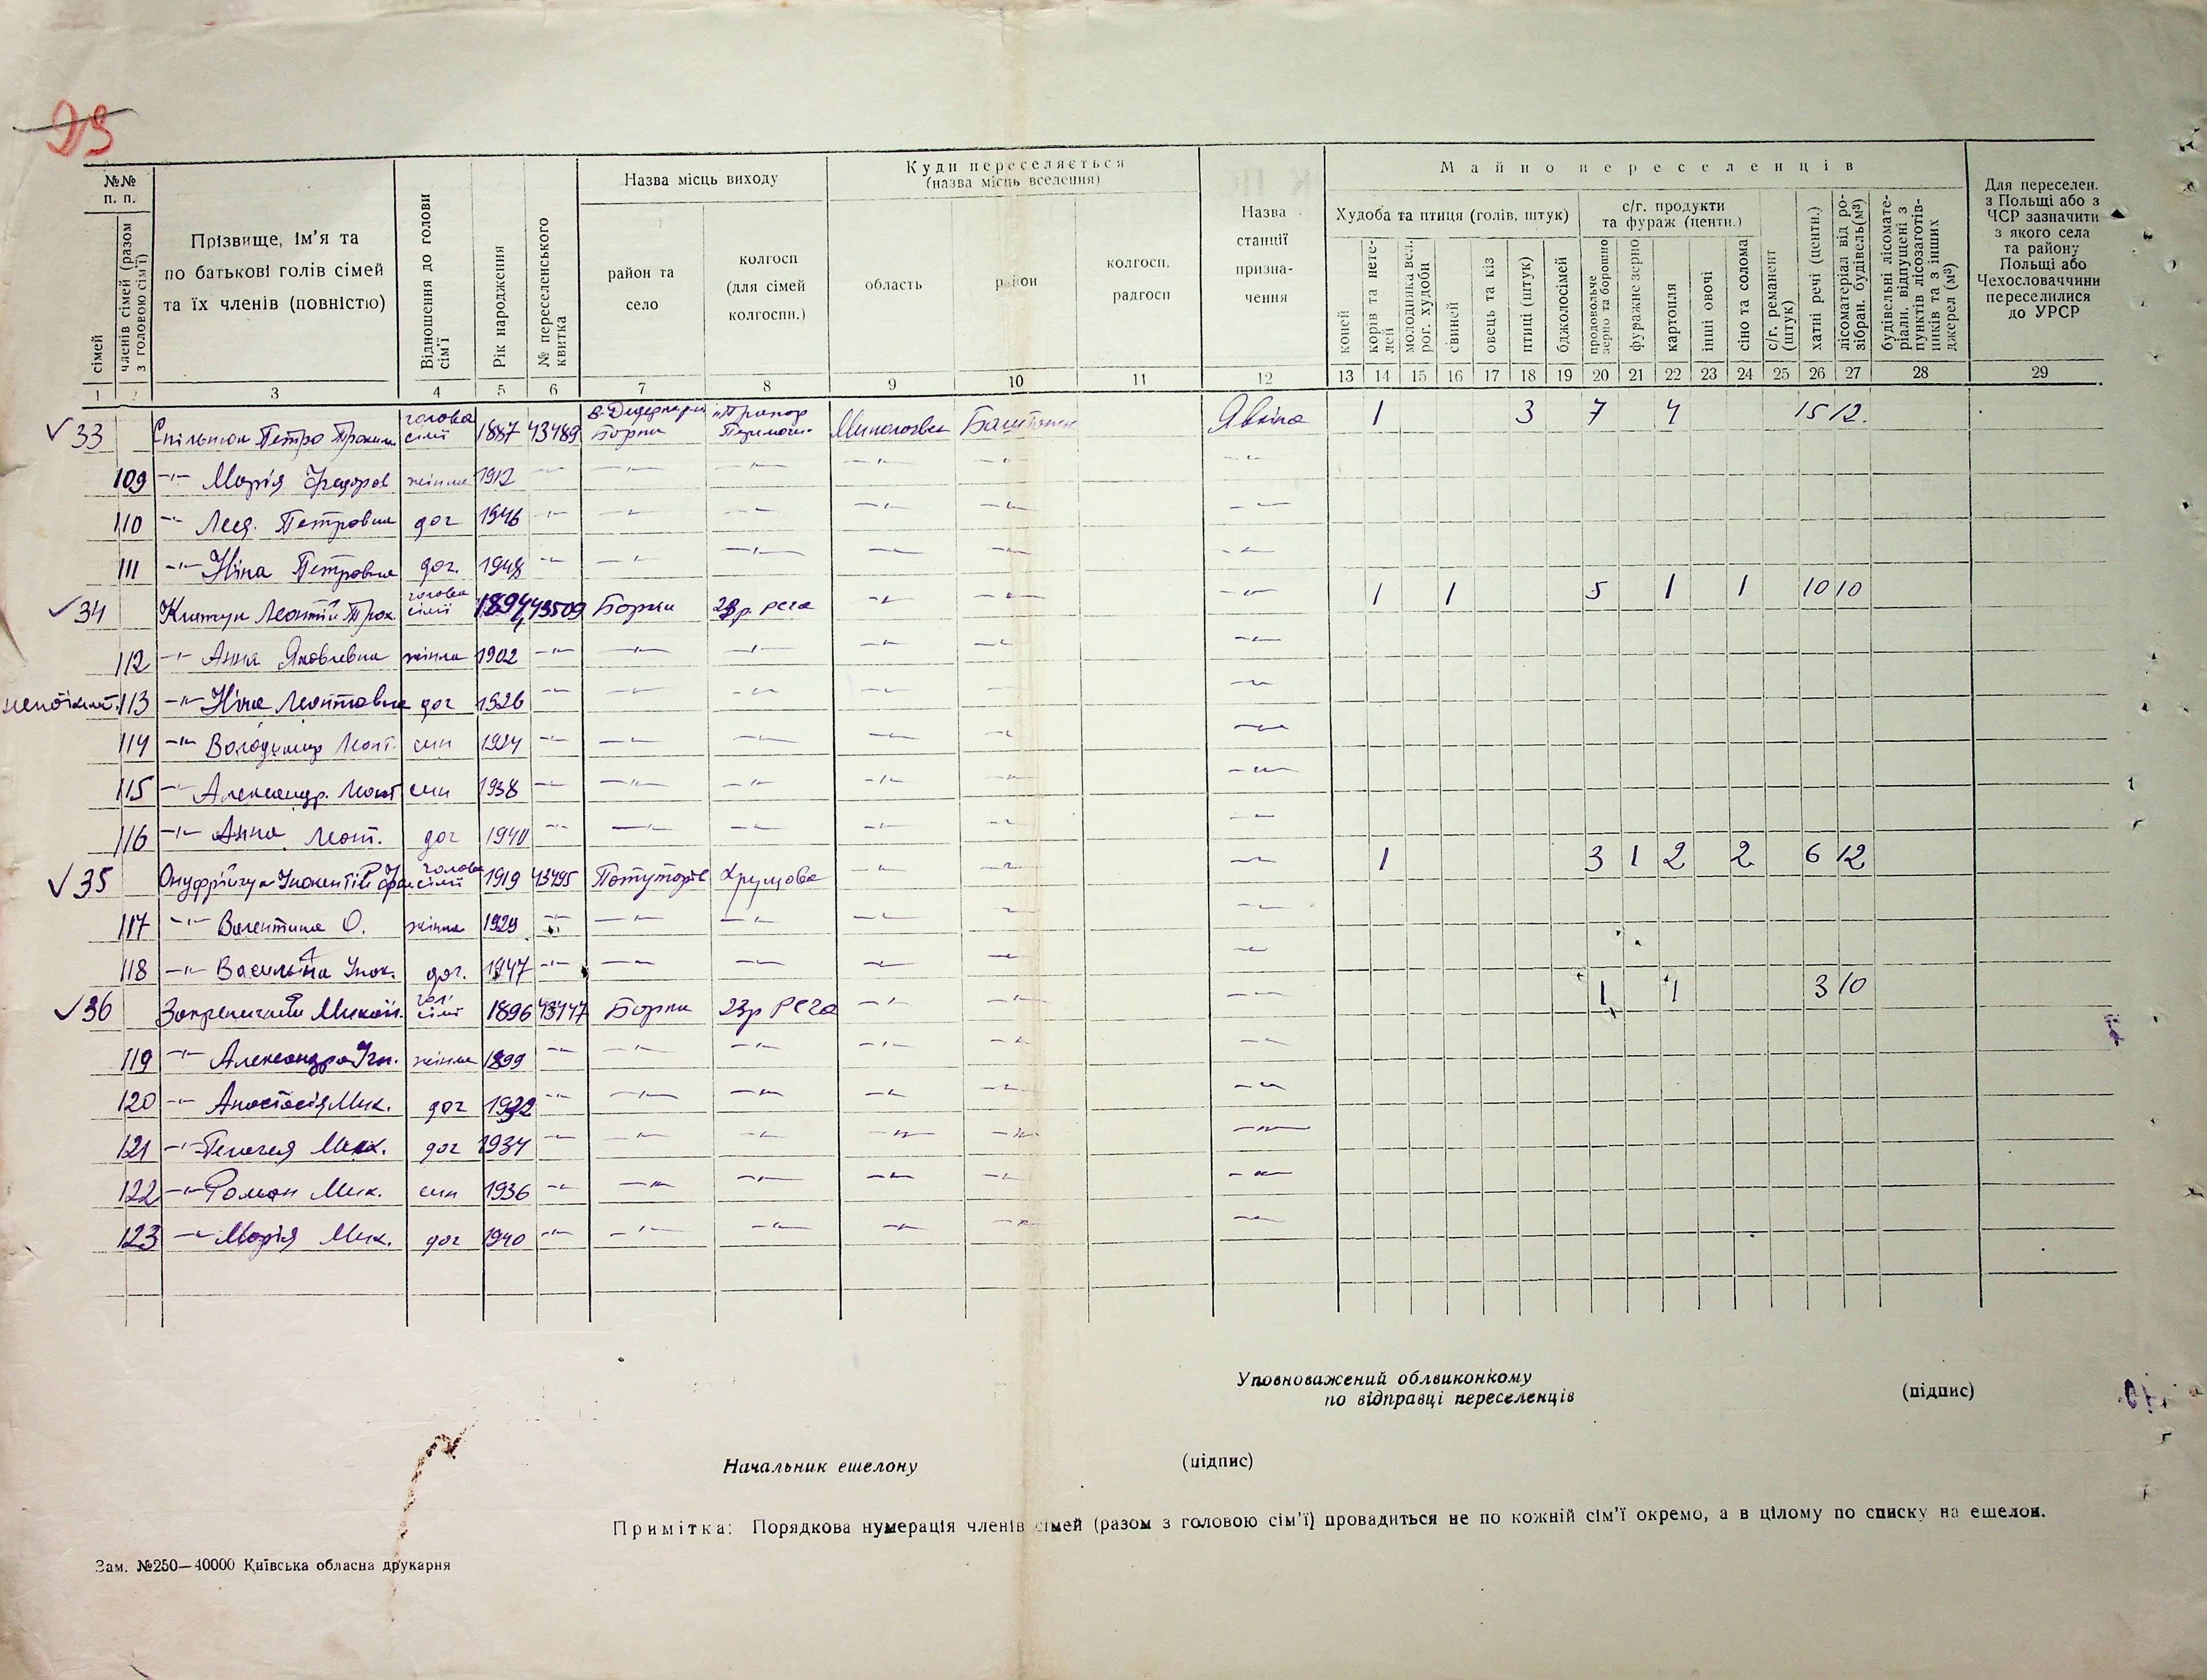 25
№№ п. п.
сімей
членів сімей (разом з головою сім'ї)
Прізвище, ім'я та
по батькові голів сімей
та їх членів (повністю)
Відношення до голови сім'ї
Рік народження
№ переселенського квитка
Назва місць виходу
район та село
колгосп (для сімей колгоспн.)
Куди переселяється
(назва місць вселення)
область
район
колгосп, радгосп
Назва станції призначення
Майно переселенців
Худоба та птиця (голів, штук)
коней
корів та нетелей
молодняка вел. рог. худоби
свиней
овець та кіз
птиці (штук)
бджолосімей
с/г. продукти та фураж (центн.)
продовольче зерно та борошно
фуражне зерно
картопля
інші овочі
сіно та солома
с/г. реманент (штук)
хатні речі (центн.)
лісоматеріал від розібран. будівель (м³)
будівельні лісоматеріали, відпущені з пунктів лісозаготівників та з інших джерел (м³)
Для переселен. з Польщі або з ЧСР зазначити з якого села та району Польщі або Чехословаччини переселилися до УРСР
1 2 3 4 5 6 7 8 9 10 11 12 13 14 15 16 17 18 19 20 21 22 23 24 25 26 27 28 29
✓33 Петро голова сімї 1887 43489 Борки Прапор Явкіно 1 3 7 4 15 12.
109 -"- Марія жінка 1912 -"- -"- -"- -"- -"- -"-
110 -"- Леся Петровна доч 1946 -"- -"- -"- -"- -"- -"-
111 -"- Ніна Петровна доч. 1948 -"- -"- -"- -"- -"- -"-
✓34 Леонтій Прок. голова сімї 1894 43509 Борки 23 р. РСЧА -"- -"- -"- 1 1 5 1 1 10 10
112 -"- Анна Яковлевна жінка 1902 -"- -"- -"- -"- -"- -"-
113 -"- Ніна Леонтовна доч 1926 -"- -"- -"- -"- -"- -"-
114 -"- Володимир Леонт. син 1924 -"- -"- -"- -"- -"- -"-
115 -"- Александр. Леонт син 1938 -"- -"- -"- -"- -"- -"-
116 -"- Анна Леонт. доч 1940 -"- -"- -"- -"- -"- -"-
✓35 Онуфрійчук Інокентій голова сімї 1919 43495 Потуторів Хрущова -"- -"- -"- 1 3 1 2 2 6 12
117 -"- Валентина О. жінка 1929 -"- -"- -"- -"- -"- -"-
118 -"- Васильна Інок. доч. 1947 -"- -"- -"- -"- -"- -"-
✓36 Микол. гол. сімї 1896 43447 Борки 23 р РСЧА -"- -"- -"- 1 1 3 10
119 -"- Александра Ігн. жінка 1899 -"- -"- -"- -"- -"- -"-
120 -"- Анастасія Мик. доч 1932 -"- -"- -"- -"- -"- -"-
121 -"- Пелагея Мик. доч 1934 -"- -"- -"- -"- -"- -"-
122 -"- Роман Мик. син 1936 -"- -"- -"- -"- -"- -"-
123 -"- Марія Мик. доч 1940 -"- -"- -"- -"- -"- -"-
Уповноважений облвиконкому
по відправці переселенців
(підпис)
Начальник ешелону
(підпис)
Примітка: Порядкова нумерація членів сімей (разом з головою сім'ї) провадиться не по кожній сім'ї окремо, а в цілому по списку на ешелон.
Зам. №250—40000 Київська обласна друкарня